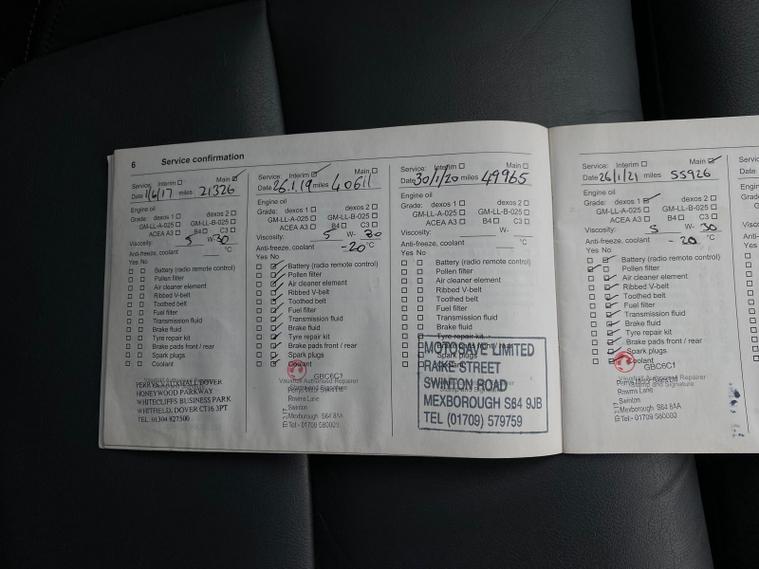 6 Service confirmation
Service: Interim ☐ Main ☑
Date 1/6/17 miles 21326
Engine oil
Grade: dexos 1 ☐ dexos 2 ☐
GM-LL-A-025 ☐ GM-LL-B-025 ☐
ACEA A3 ☐ B4 ☐ C3 ☐
Viscosity: 5 W- 30
Anti-freeze, coolant °C
Yes No
Battery (radio remote control)
Pollen filter
Air cleaner element
Ribbed V-belt
Toothed belt
Fuel filter
Transmission fluid
Brake fluid
Tyre repair kit
Brake pads front / rear
Spark plugs
Coolant
VAUXHALL DOVER
HONEYWOOD PARKWAY
WHITECLIFFS BUSINESS PARK
WHITFIELD, DOVER CT16 3PT
TEL: 01304 827500
Service: Interim ☑ Main ☐
Date 26.1.19 miles 40611
Engine oil
Grade: dexos 1 ☐ dexos 2 ☐
GM-LL-A-025 ☐ GM-LL-B-025 ☐
ACEA A3 ☐ B4 ☐ C3 ☐
Viscosity: 5 W- 30
Anti-freeze, coolant -20 °C
Yes No
Battery (radio remote control)
Pollen filter
Air cleaner element
Ribbed V-belt
Toothed belt
Fuel filter
Transmission fluid
Brake fluid
Tyre repair kit
Brake pads front / rear
Spark plugs
Coolant
GBC6C1
Vauxhall Authorised Repairer
Rowms Lane
Swinton
Mexborough S64 8AA
Tel - 01709 580000
Service: Interim ☐ Main ☐
Date 30/1/20 miles 49965
Engine oil
Grade: dexos 1 ☐ dexos 2 ☐
GM-LL-A-025 ☐ GM-LL-B-025 ☐
ACEA A3 ☐ B4 ☐ C3 ☐
Viscosity: W-
Anti-freeze, coolant °C
Yes No
Battery (radio remote control)
Pollen filter
Air cleaner element
Ribbed V-belt
Toothed belt
Fuel filter
Transmission fluid
Brake fluid
Tyre repair kit
Brake pads front / rear
Spark plugs
Coolant
MOTOSAVE LIMITED
RAIKE STREET
SWINTON ROAD
MEXBOROUGH S64 9JB
TEL (01709) 579759
Service: Interim ☐ Main ☑
Date 26/1/21 miles 55926
Engine oil
Grade: dexos 1 ☑ dexos 2 ☐
GM-LL-A-025 ☐ GM-LL-B-025 ☐
ACEA A3 ☐ B4 ☐ C3 ☐
Viscosity: 5 W- 30
Anti-freeze, coolant -20 °C
Yes No
Battery (radio remote control)
Pollen filter
Air cleaner element
Ribbed V-belt
Toothed belt
Fuel filter
Transmission fluid
Brake fluid
Tyre repair kit
Brake pads front / rear
Spark plugs
Coolant
GBC6C1
Vauxhall Authorised Repairer
Rowms Lane
Swinton
Mexborough S64 8AA
Tel - 01709 580000